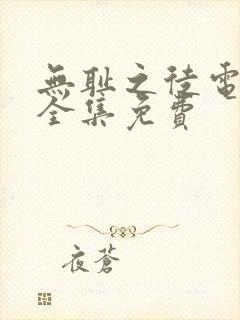 無耻之徒電
全集免費
夜蒼